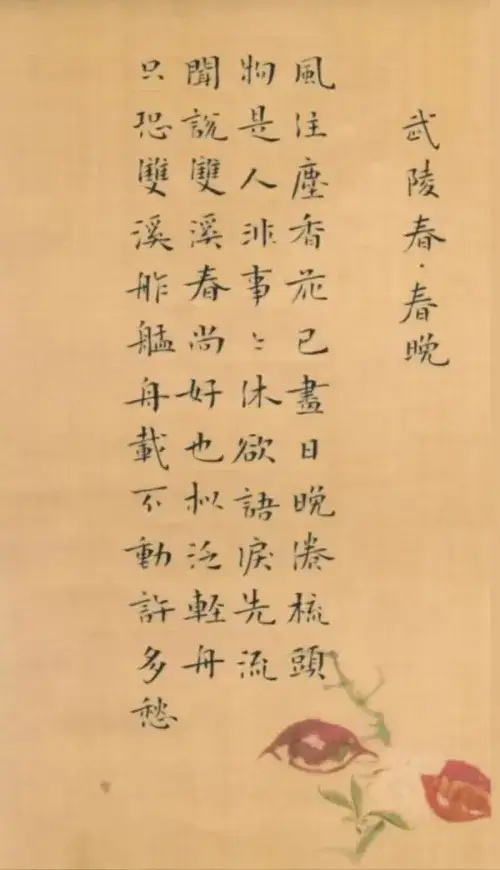 武陵春·春晚
風住塵香花已盡日晚倦梳頭
物是人非事〻休欲語淚先流
聞說雙溪春尚好也拟泛輕舟
只恐雙溪舴艋舟載不動許多愁